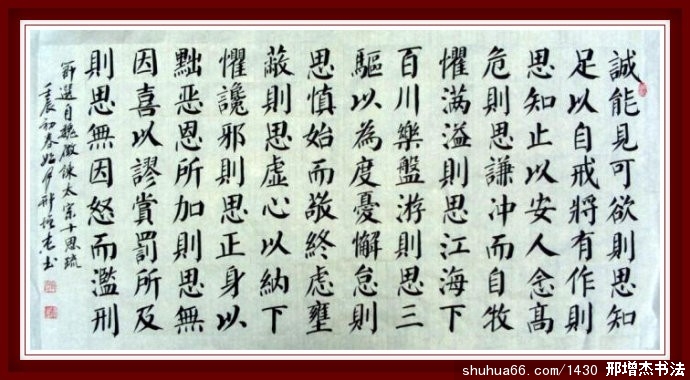 誠能見可欲則思知
足以自戒將有作則
思知止以安人念髙
危則思謙冲而自牧
懼满溢則思江海下
百川樂盤游則思三
驅以為度憂懈怠則
思慎始而敬終慮壅
蔽則思虚心以納下
懼讒邪則思正身以
黜恶恩所加則思無
因喜以謬賞罰所及
則思無因怒而濫刑
節選自魏徵諫太宗十思疏
壬辰初春
shuhua66.com/1430 邢增杰书法